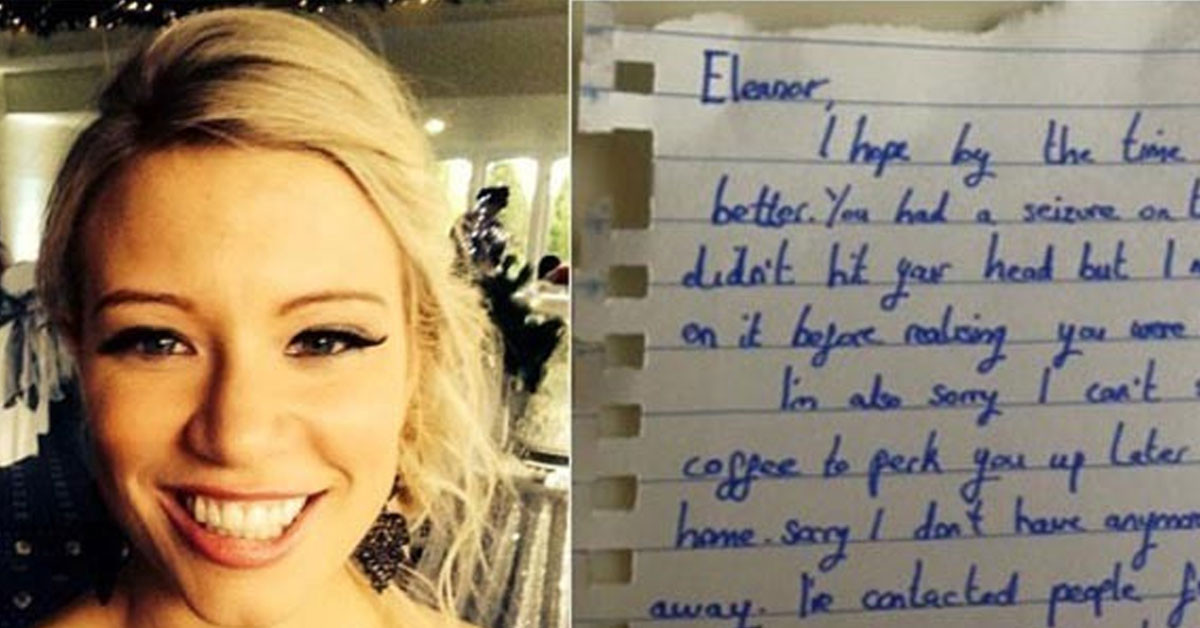 Eleanor,
I hope by the time
better. You had a seizure on
didn't hit your head but I
on it before realising you were
I'm also sorry I can't
coffee to perk you up later
home. Sorry I don't have anymor
away. I've contacted people f